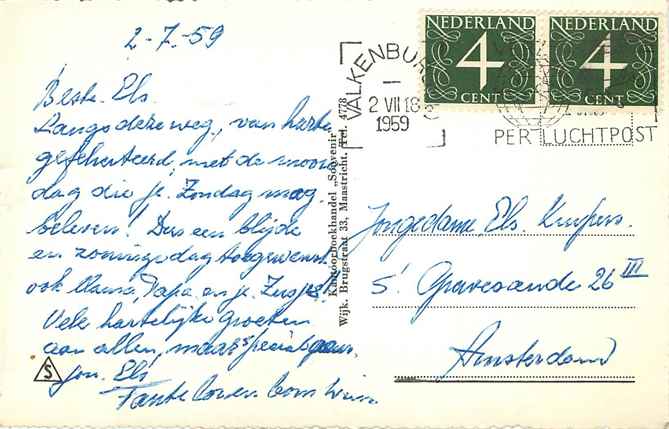 2-7-59
Beste Els.
Langs deze weg, van harte
gefeliciteerd, met de mooie
dag die je Zondag mag
beleven! Dus een blijde
en zonnige dag toegewenst
ook Mama, Papa, en je Zusje.
Vele hartelijke groeten
aan allen, maar speciaal
jou. Els
Tante oom Wim
NEDERLAND
4
CENT
NEDERLAND
4
CENT
VALKENBURG
2 VII 18
1959
PER LUCHTPOST
Kantoorboekhandel „Souvenir”
Wijk. Brugstraat 33, Maastricht, Tel. 4778
Jongedame Els Kuipers.
s' Gravesande 26 III
Amsterdam
S